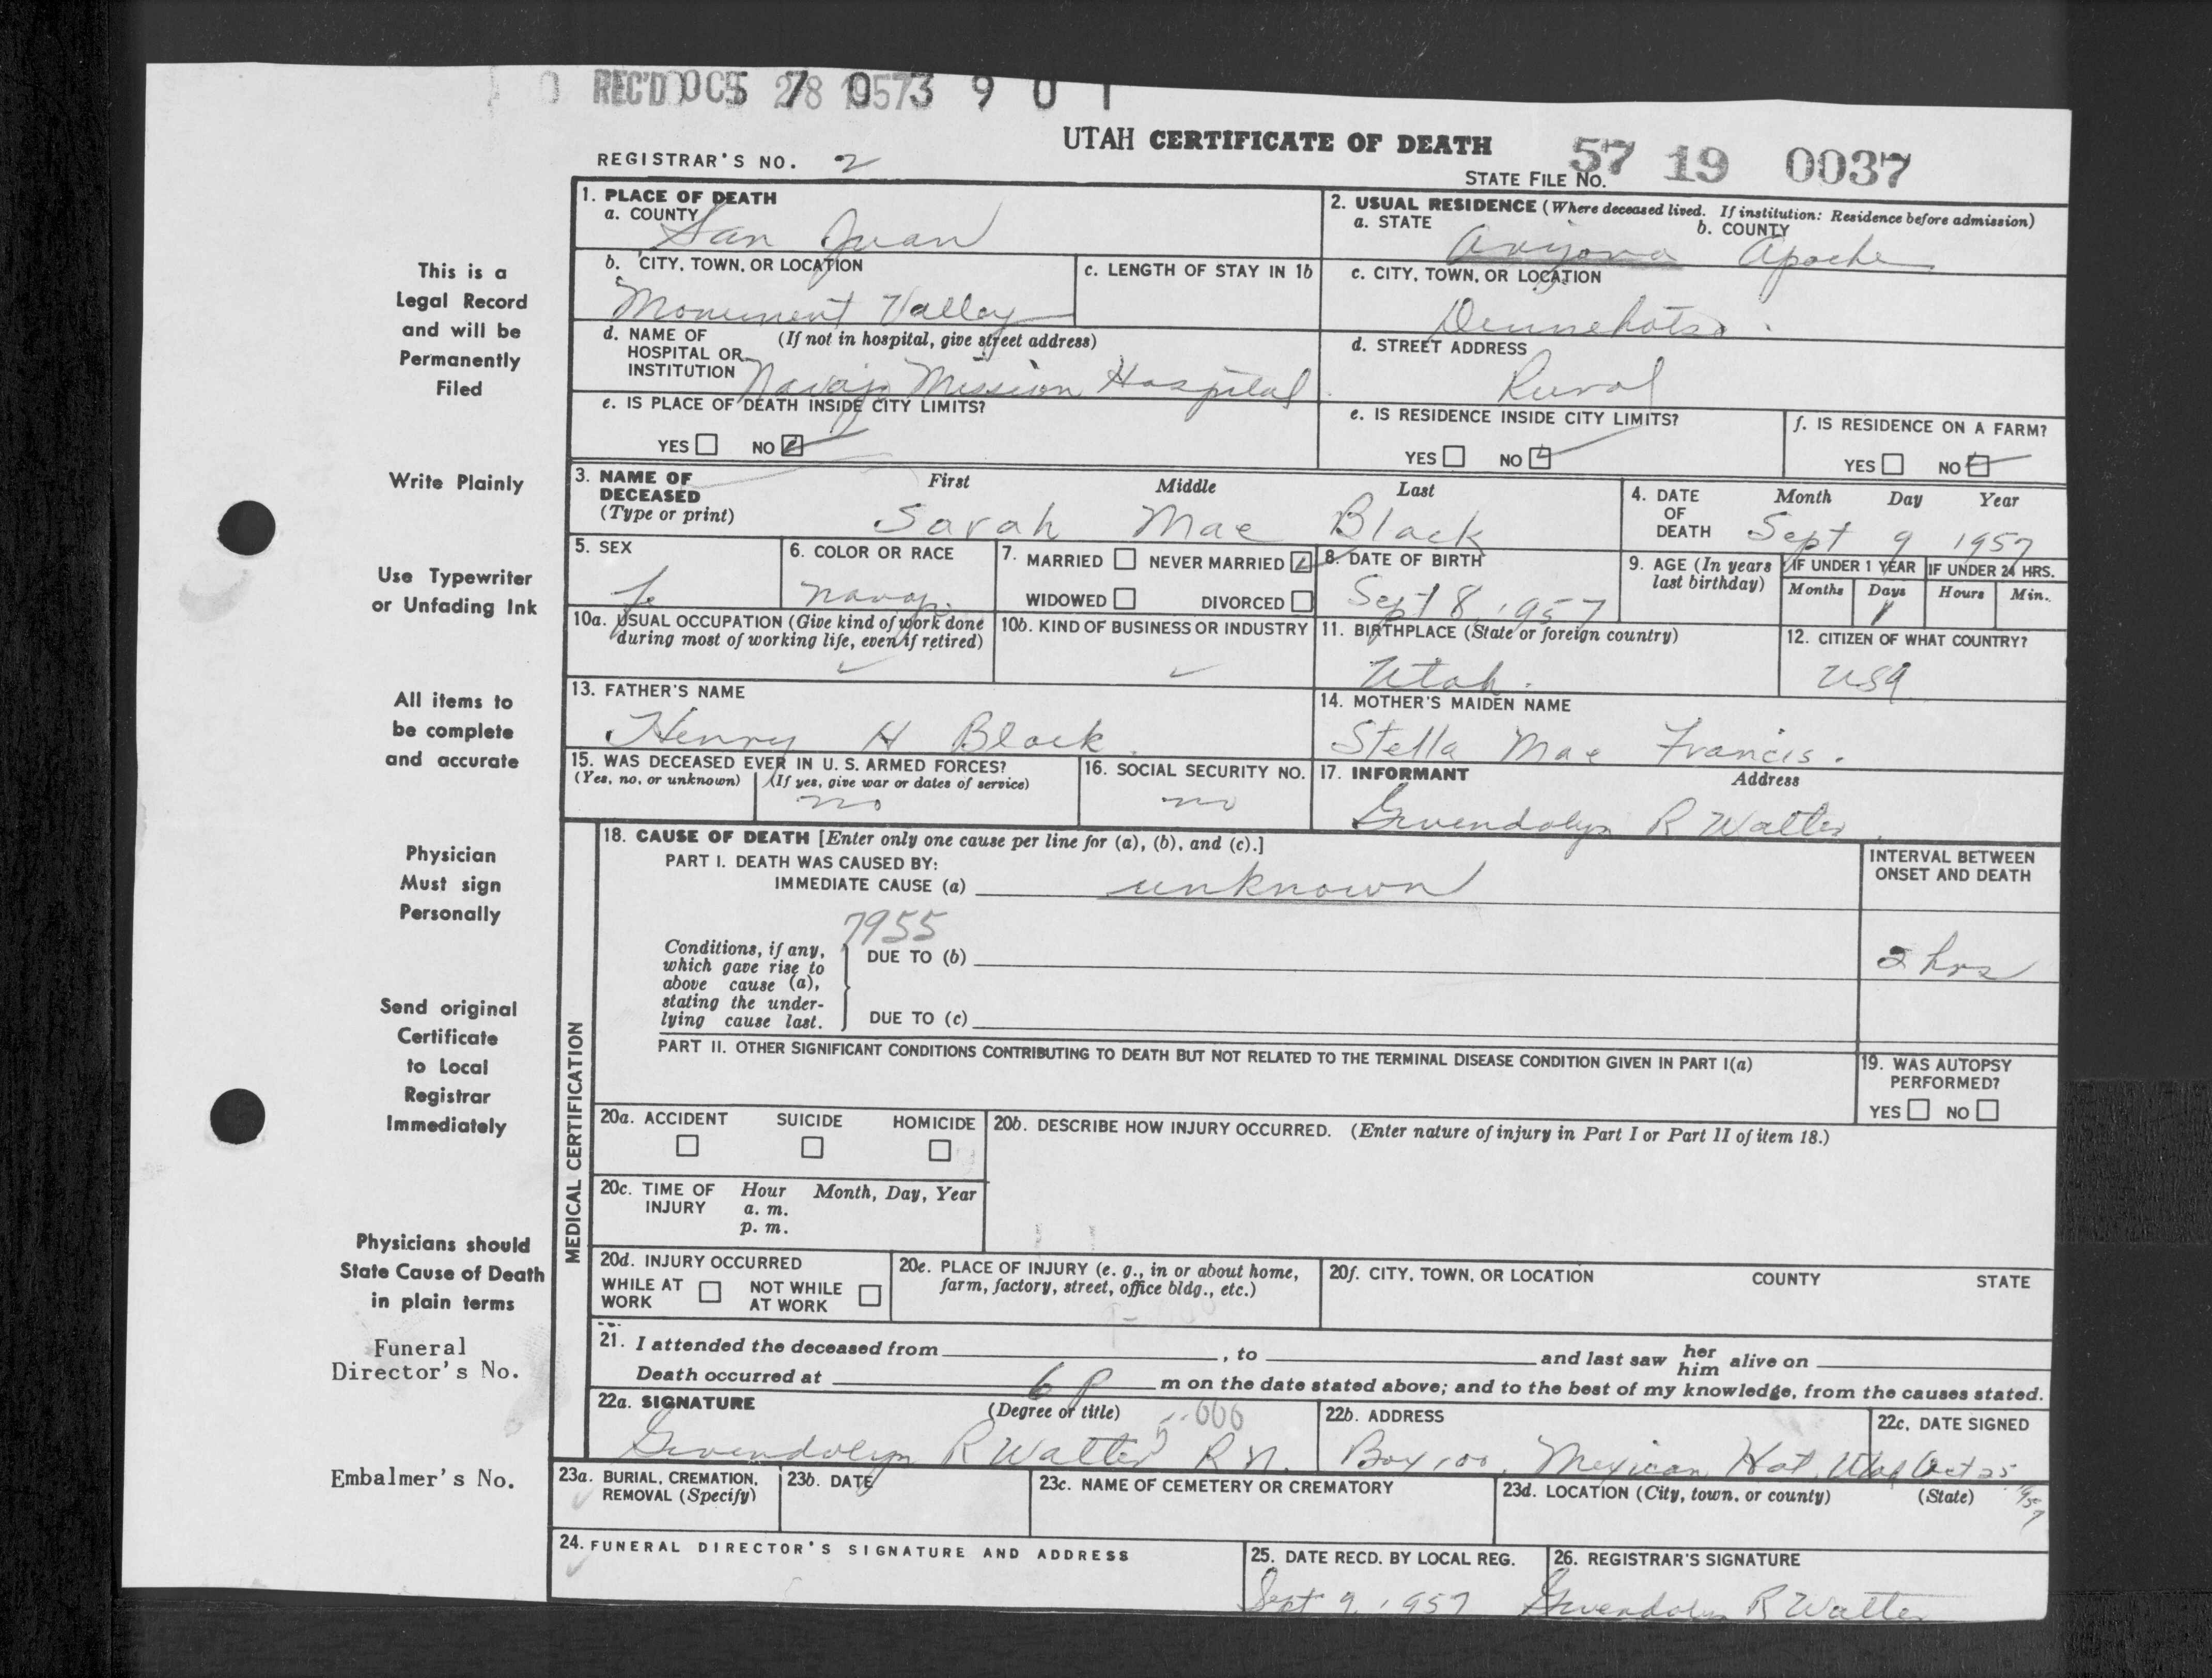 REC'D OCT 28 1957 3 9 0 1
UTAH CERTIFICATE OF DEATH
REGISTRAR'S NO. 2
STATE FILE NO. 57 19 0037
This is a
Legal Record
and will be
Permanently
Filed
Write Plainly
Use Typewriter
or Unfading Ink
All items to
be complete
and accurate
Physician
Must sign
Personally
Send original
Certificate
to Local
Registrar
Immediately
Physicians should
State Cause of Death
in plain terms
Funeral
Director's No.
Embalmer's No.
1. PLACE OF DEATH
a. COUNTY San Juan
2. USUAL RESIDENCE (Where deceased lived. If institution: Residence before admission)
a. STATE Arizona b. COUNTY Apache
b. CITY, TOWN, OR LOCATION Monument Valley
c. LENGTH OF STAY IN 1b
c. CITY, TOWN, OR LOCATION Dennehotso.
d. NAME OF HOSPITAL OR INSTITUTION (If not in hospital, give street address) Navajo Mission Hospital
d. STREET ADDRESS Rural
e. IS PLACE OF DEATH INSIDE CITY LIMITS?
YES NO
e. IS RESIDENCE INSIDE CITY LIMITS?
YES NO
f. IS RESIDENCE ON A FARM?
YES NO
3. NAME OF DECEASED (Type or print)
First Middle Last
Sarah Mae Black
4. DATE OF DEATH
Month Day Year
Sept 9 1957
5. SEX
Fe
6. COLOR OR RACE
Navajo
7. MARRIED NEVER MARRIED
WIDOWED DIVORCED
8. DATE OF BIRTH
Sept 8, 1957
9. AGE (In years last birthday)
IF UNDER 1 YEAR IF UNDER 24 HRS.
Months Days Hours Min.
1
10a. USUAL OCCUPATION (Give kind of work done during most of working life, even if retired)
10b. KIND OF BUSINESS OR INDUSTRY
11. BIRTHPLACE (State or foreign country)
Utah.
12. CITIZEN OF WHAT COUNTRY?
USA
13. FATHER'S NAME
Henry H Black.
14. MOTHER'S MAIDEN NAME
Stella Mae Francis.
15. WAS DECEASED EVER IN U. S. ARMED FORCES?
(Yes, no, or unknown) (If yes, give war or dates of service)
no
16. SOCIAL SECURITY NO.
no
17. INFORMANT Address
Gwendolyn R Walter
MEDICAL CERTIFICATION
18. CAUSE OF DEATH [Enter only one cause per line for (a), (b), and (c).]
PART I. DEATH WAS CAUSED BY:
IMMEDIATE CAUSE (a) unknown
INTERVAL BETWEEN ONSET AND DEATH
2 hrs
7955
Conditions, if any, which gave rise to above cause (a), stating the underlying cause last.
DUE TO (b)
DUE TO (c)
PART II. OTHER SIGNIFICANT CONDITIONS CONTRIBUTING TO DEATH BUT NOT RELATED TO THE TERMINAL DISEASE CONDITION GIVEN IN PART I(a)
19. WAS AUTOPSY PERFORMED?
YES NO
20a. ACCIDENT SUICIDE HOMICIDE
20b. DESCRIBE HOW INJURY OCCURRED. (Enter nature of injury in Part I or Part II of item 18.)
20c. TIME OF INJURY Hour Month, Day, Year
a. m.
p. m.
20d. INJURY OCCURRED
WHILE AT WORK NOT WHILE AT WORK
20e. PLACE OF INJURY (e. g., in or about home, farm, factory, street, office bldg., etc.)
20f. CITY, TOWN, OR LOCATION COUNTY STATE
21. I attended the deceased from , to and last saw her him alive on
Death occurred at 6 P m on the date stated above; and to the best of my knowledge, from the causes stated.
22a. SIGNATURE (Degree or title)
Gwendolyn R Walter R N.
22b. ADDRESS
Box 100, Mexican Hat, Utah
22c. DATE SIGNED
Oct 25 1957
23a. BURIAL, CREMATION, REMOVAL (Specify)
23b. DATE
23c. NAME OF CEMETERY OR CREMATORY
23d. LOCATION (City, town, or county) (State)
24. FUNERAL DIRECTOR'S SIGNATURE AND ADDRESS
25. DATE RECD. BY LOCAL REG.
Sept 9, 1957
26. REGISTRAR'S SIGNATURE
Gwendolyn R Walter